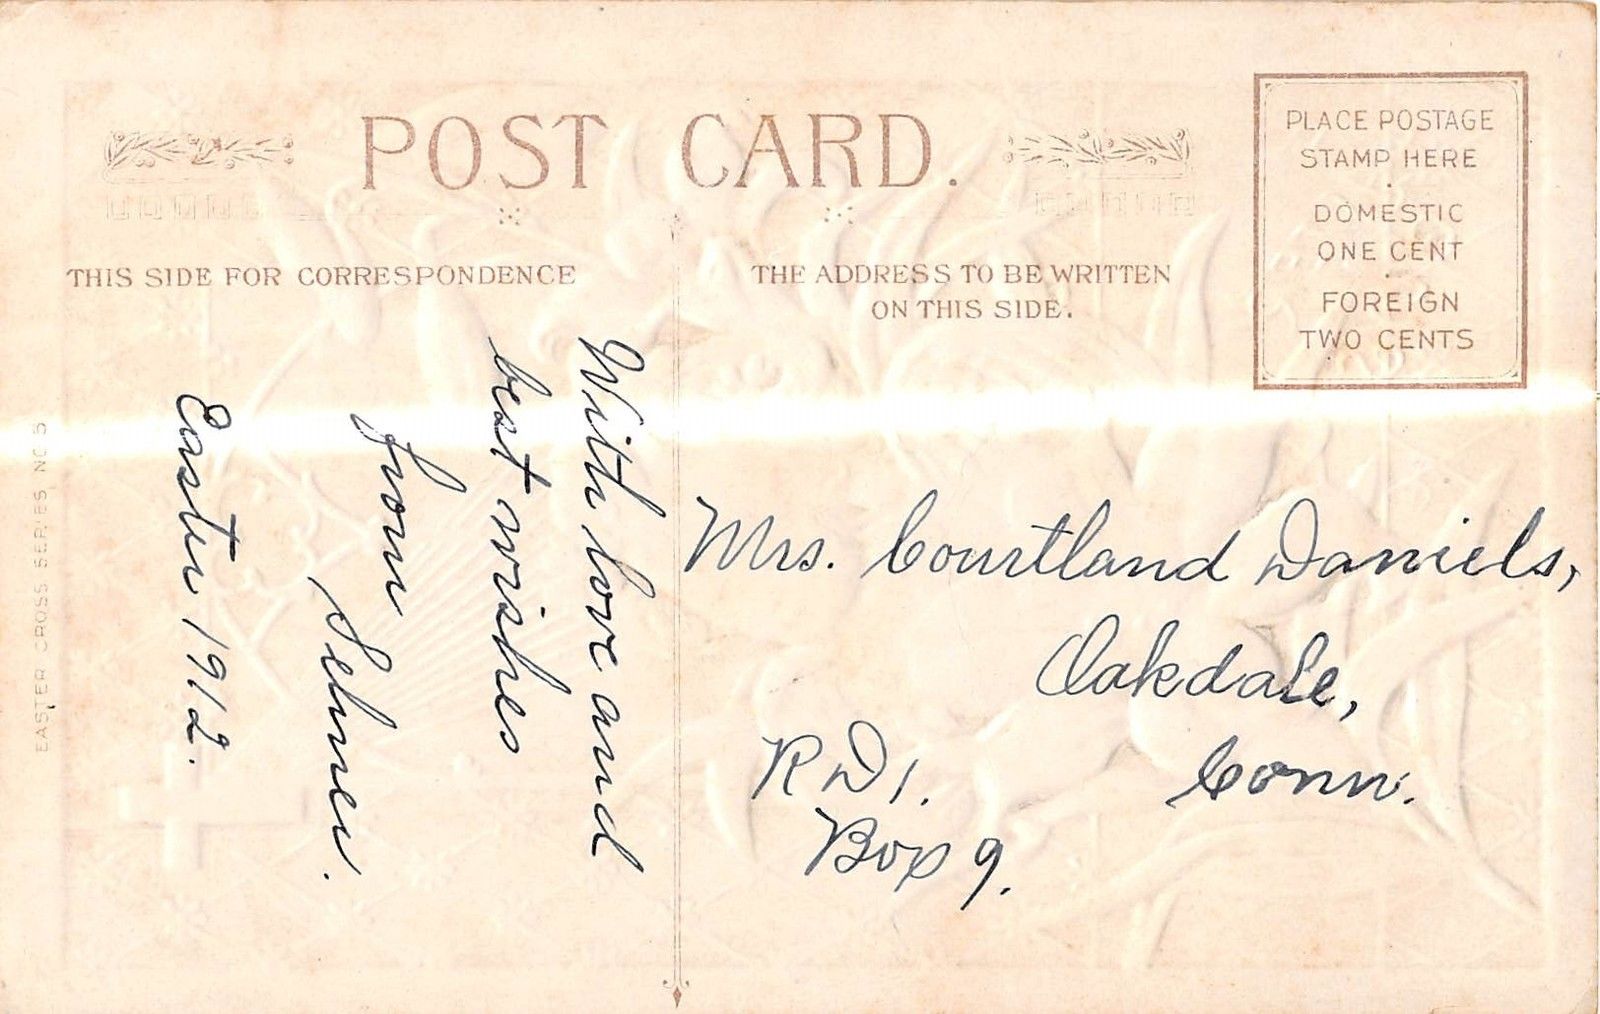 POST CARD.
THIS SIDE FOR CORRESPONDENCE
THE ADDRESS TO BE WRITTEN
ON THIS SIDE.
PLACE POSTAGE
STAMP HERE
DOMESTIC
ONE CENT
FOREIGN
TWO CENTS
With love and
best wishes
from
Selmer.
Easter 1912.
Mrs. Courtland Daniels,
Oakdale,
Conn.
R D 1.
Box 9.
EASTER CROSS SERIES NO. 5